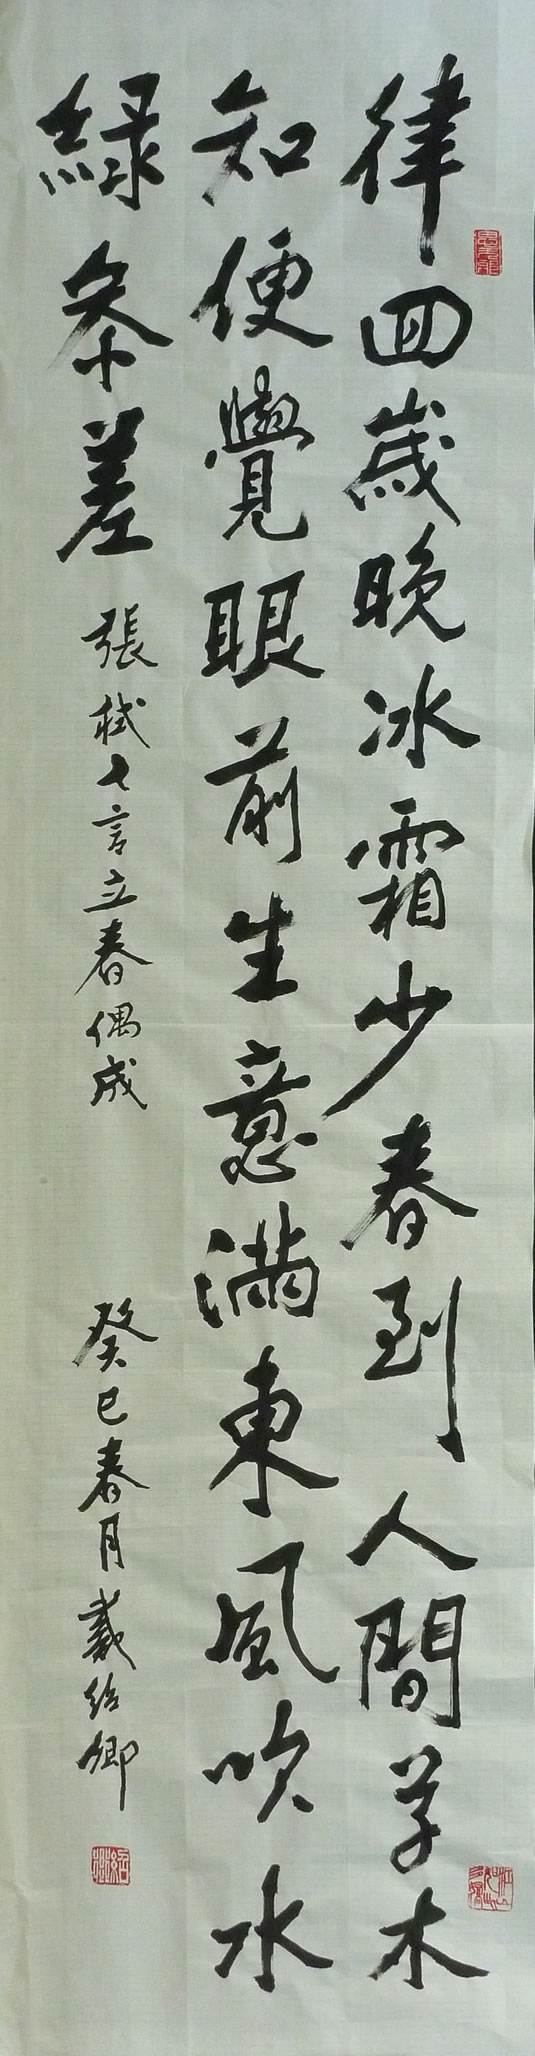 律回歲晚冰霜少春到人間草木
知便覺眼前生意滿東風吹水
綠參差
張栻七言立春偶成
癸巳春月戴紹卿